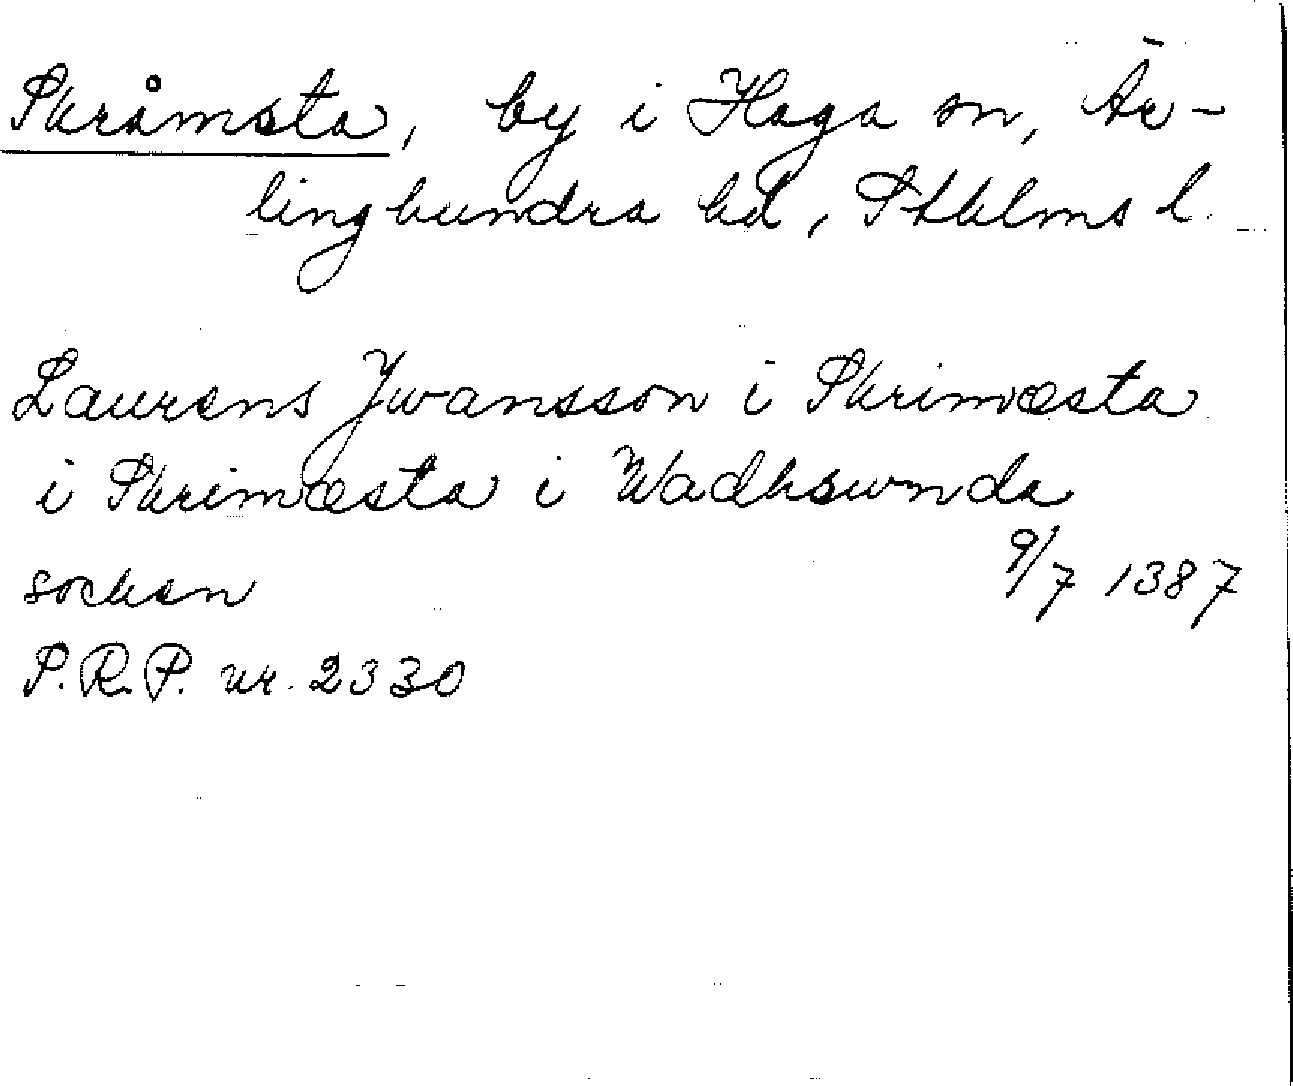 Skråmsta, by i Haga sn, Är-
linghundra hd, Sthlms l.
Laurens Jwansson i Skrimæsta
i Skrimæsta i Wadhswnda
socken 9/7 1387
S.R.P. nr. 2330